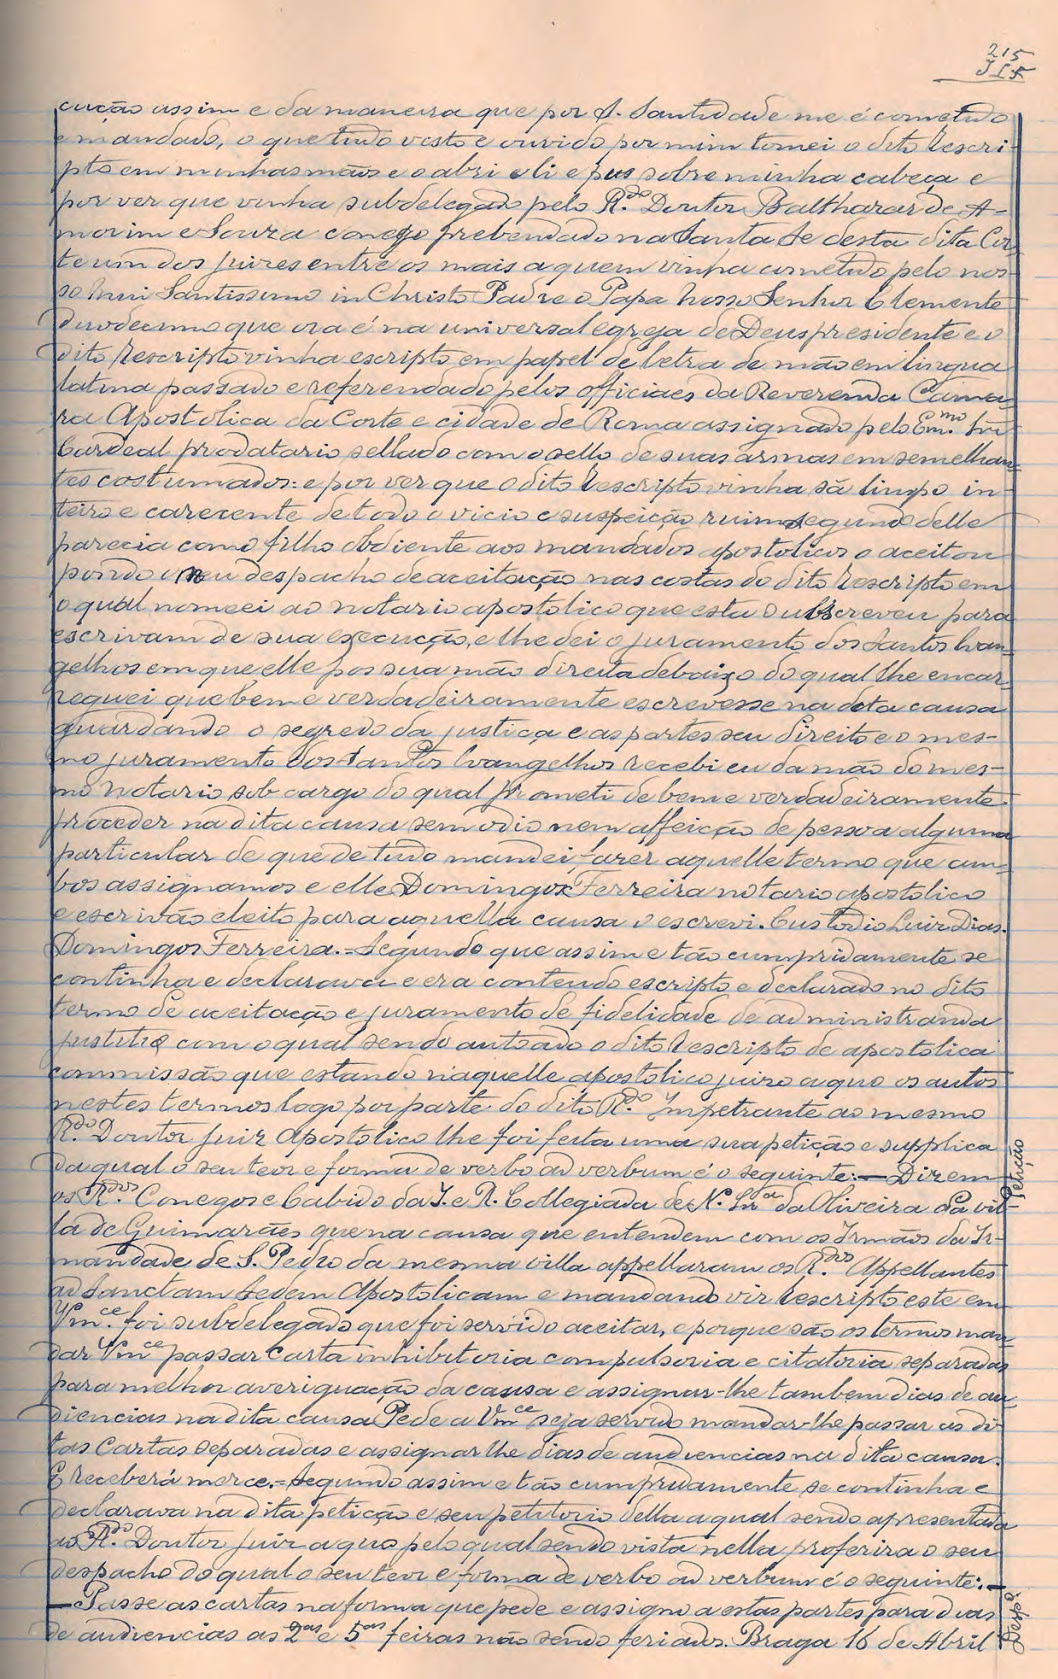 215
cução assim e da maneira que por S. Santidade me é cometido
e mandado, o que tudo visto e ouvido por mim tomei o dito Rescri-
pto em minhas mãos e o abri e li e pus sobre minha cabeça e
por ver que vinha subdelegado pelo R.do Doutor Balthazar de A-
morim e Souza conego prebendado na Santa Se desta dita Cor-
te um dos juizes entre os mais a quem vinha cometido pelo nos-
so mui Santissimo in Christo Padre o Papa Nosso Senhor Clemente
duodecimo que ora é na universal egreja de Deus presidente e o
dito Rescripto vinha escripto em papel de letra de mão em lingua
latina passado e referendado pelos officiaes da Reverenda Cama-
ra Apostolica da Corte e cidade de Roma assignado pelo Em.mo Snr
Cardeal prodatario sellado com o sello de suas armas em semelhan-
tes costumados: e por ver que o dito Rescripto vinha sã limpo in-
teiro e carecente de todo o vicio e suspeição ruim segundo delle
parecia como filho obdiente aos mandados apostolicos o aceitou
pondo o meu despacho de aceitação nas costas do dito Rescripto em
o qual nomeei ao notario apostolico que esta subscreveu para
escrivam de sua execucção, e lhe dei o juramento dos Santos Evan-
gelhos em que elle pos sua mão direita debaixo do qual lhe encar-
reguei que bem e verdadeiramente escrevesse na dita causa
guardando o segredo da justiça e as partes seu direito e o mes-
mo juramento dos Santos Evangelhos recebi eu da mão do mes-
mo notario sob cargo do qual prometi de bem e verdadeiramente
proceder na dita causa sem odio nem affeicção de pessoa alguma
particular de que de tudo mandei fazer aquelle termo que am-
bos assignamos e elle Domingos Ferreira notario apostolico
e escrivão eleito para aquella causa o escrevi. Custodio Luiz Dias.
Domingos Ferreira.=Segundo que assim e tão cumpridamente se
continha e declarava e era contendo escripto e declarado no dito
termo de aceitação e juramento de fidelidade de administranda
justitia com o qual sendo autoado o dito Rescripto de apostolica
commissão que estando n'aquelle apostolico juizo a quo os autos
nestes termos logo por parte do dito R.do Impetrante ao mesmo
R.do Doutor Juiz Apostolico lhe foi feita uma sua petição e supplica
da qual o seu teor e forma de verbo ad verbum é o seguinte:—Dizem
os R.dos Conegos e Cabido da I. e R. Collegiada de N.a Snr.a da Oliveira da vil-
Petição
la de Guimarães que na causa que entendem com os Irmãos da Ir-
mandade de S. Pedro da mesma villa appellaram os R.dos Appellantes
ad Sanctam Sedem Apostolicam e mandando vir Rescripto este em
Vm.ce foi subdelegado que foi servido aceitar, e porque são os termos man-
dar Vm.ce passar Carta inhibitoria compulsoria e citatoria separadas
para melhor averiguacção da causa e assignar-lhe tambem dias de au-
diencias na dita causa Pede a Vm.ce seja servido mandar-lhe passar as di-
tas Cartas separadas e assignar lhe dias de audiencias na dita causa.
E receberá merce.=Segundo assim e tão cumpridamente se continha e
declarava na dita petição e seu petitorio della a qual sendo apresentada
ao R.do Doutor juiz a quo pelo qual sendo vista nella proferira o seu
despacho do qual o seu teor e forma de verbo ad verbum é o seguinte:—
—Passe as cartas na forma que pede e assigno a estas partes para dias
Desp.o
de audiencias as 2as e 5as feiras não sendo feriados. Braga 16 de Abril